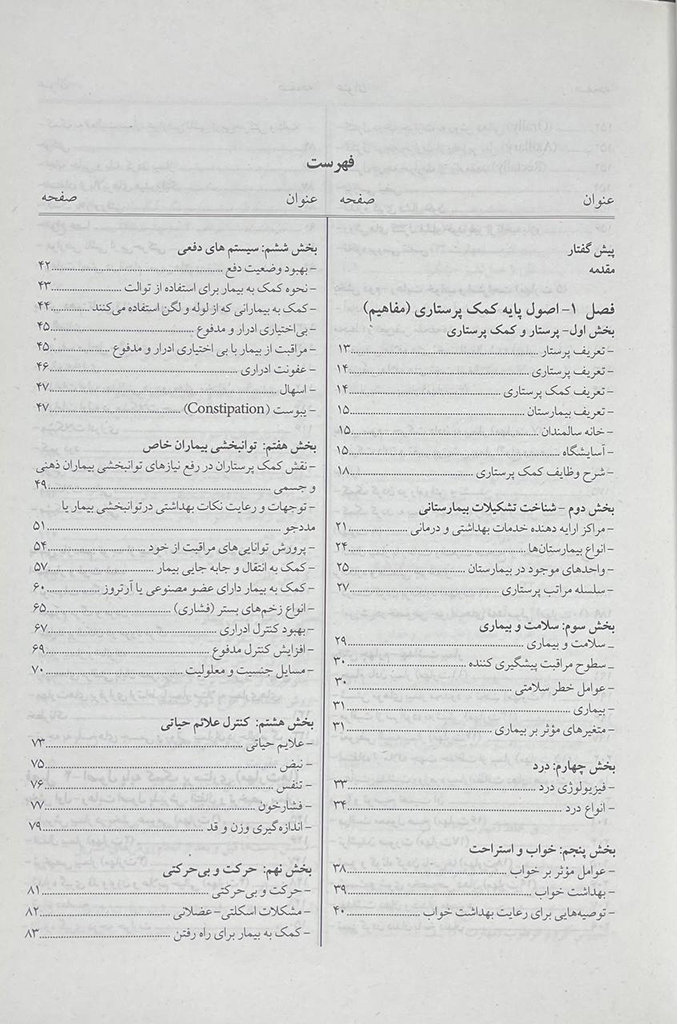 فهرست
عنوان صفحه
پیش گفتار
مقدمه
فصل ۱- اصول پایه کمک پرستاری (مفاهیم)
بخش اول- پرستار و کمک پرستاری
- تعریف پرستار ۱۳
- تعریف پرستاری ۱۴
- تعریف کمک پرستاری ۱۴
- تعریف بیمارستان ۱۵
- خانه سالمندان ۱۵
- آسایشگاه ۱۵
- شرح وظایف کمک پرستاری ۱۸
بخش دوم - شناخت تشکیلات بیمارستانی
- مراکز ارایه دهنده خدمات بهداشتی و درمانی ۲۱
- انواع بیمارستان‌ها ۲۴
- واحدهای موجود در بیمارستان ۲۵
- سلسله مراتب پرستاری ۲۷
بخش سوم: سلامت و بیماری
_ سلامت و بیماری ۲۹
_ سطوح مراقبت پیشگیری کننده ۳۰
- عوامل خطر سلامتی ۳۰
- بیماری ۳۱
- متغیرهای مؤثر بر بیماری ۳۱
بخش چهارم: درد
- فیزیولوژی درد ۳۳
- انواع درد ۳۴
بخش پنجم: خواب و استراحت
- عوامل مؤثر بر خواب ۳۸
- بهداشت خواب ۳۹
- توصیه‌هایی برای رعایت بهداشت خواب ۴۰
عنوان صفحه
بخش ششم: سیستم های دفعی
- بهبود وضعیت دفع ۴۲
- نحوه کمک به بیمار برای استفاده از توالت ۴۳
- کمک به بیمارانی که از لوله و لگن استفاده می‌کنند ۴۴
- بی‌اختیاری ادرار و مدفوع ۴۵
- مراقبت از بیمار با بی اختیاری ادرار و مدفوع ۴۵
- عفونت ادراری ۴۶
- اسهال ۴۷
- یبوست (Constipation) ۴۷
بخش هفتم: توانبخشی بیماران خاص
- نقش کمک پرستاران در رفع نیازهای توانبخشی بیماران ذهنی
و جسمی ۴۹
- توجهات و رعایت نکات بهداشتی در توانبخشی بیمار یا
مددجو ۵۱
- پرورش توانایی‌های مراقبت از خود ۵۴
- کمک به انتقال و جابه جایی بیمار ۵۷
- کمک به بیمار دارای عضو مصنوعی یا آرتروز ۶۰
- انواع زخم‌های بستر (فشاری) ۶۵
- بهبود کنترل ادراری ۶۷
- افزایش کنترل مدفوع ۶۹
- مسایل جنسیت و معلولیت ۷۰
بخش هشتم: کنترل علائم حیاتی
- علایم حیاتی ۷۳
- نبض ۷۵
- تنفس ۷۶
- فشارخون ۷۷
- اندازه‌گیری وزن و قد ۷۹
بخش نهم: حرکت و بی‌حرکتی
- حرکت و بی‌حرکتی ۸۱
- مشکلات اسکلتی- عضلانی ۸۲
- کمک به بیمار برای راه رفتن ۸۳